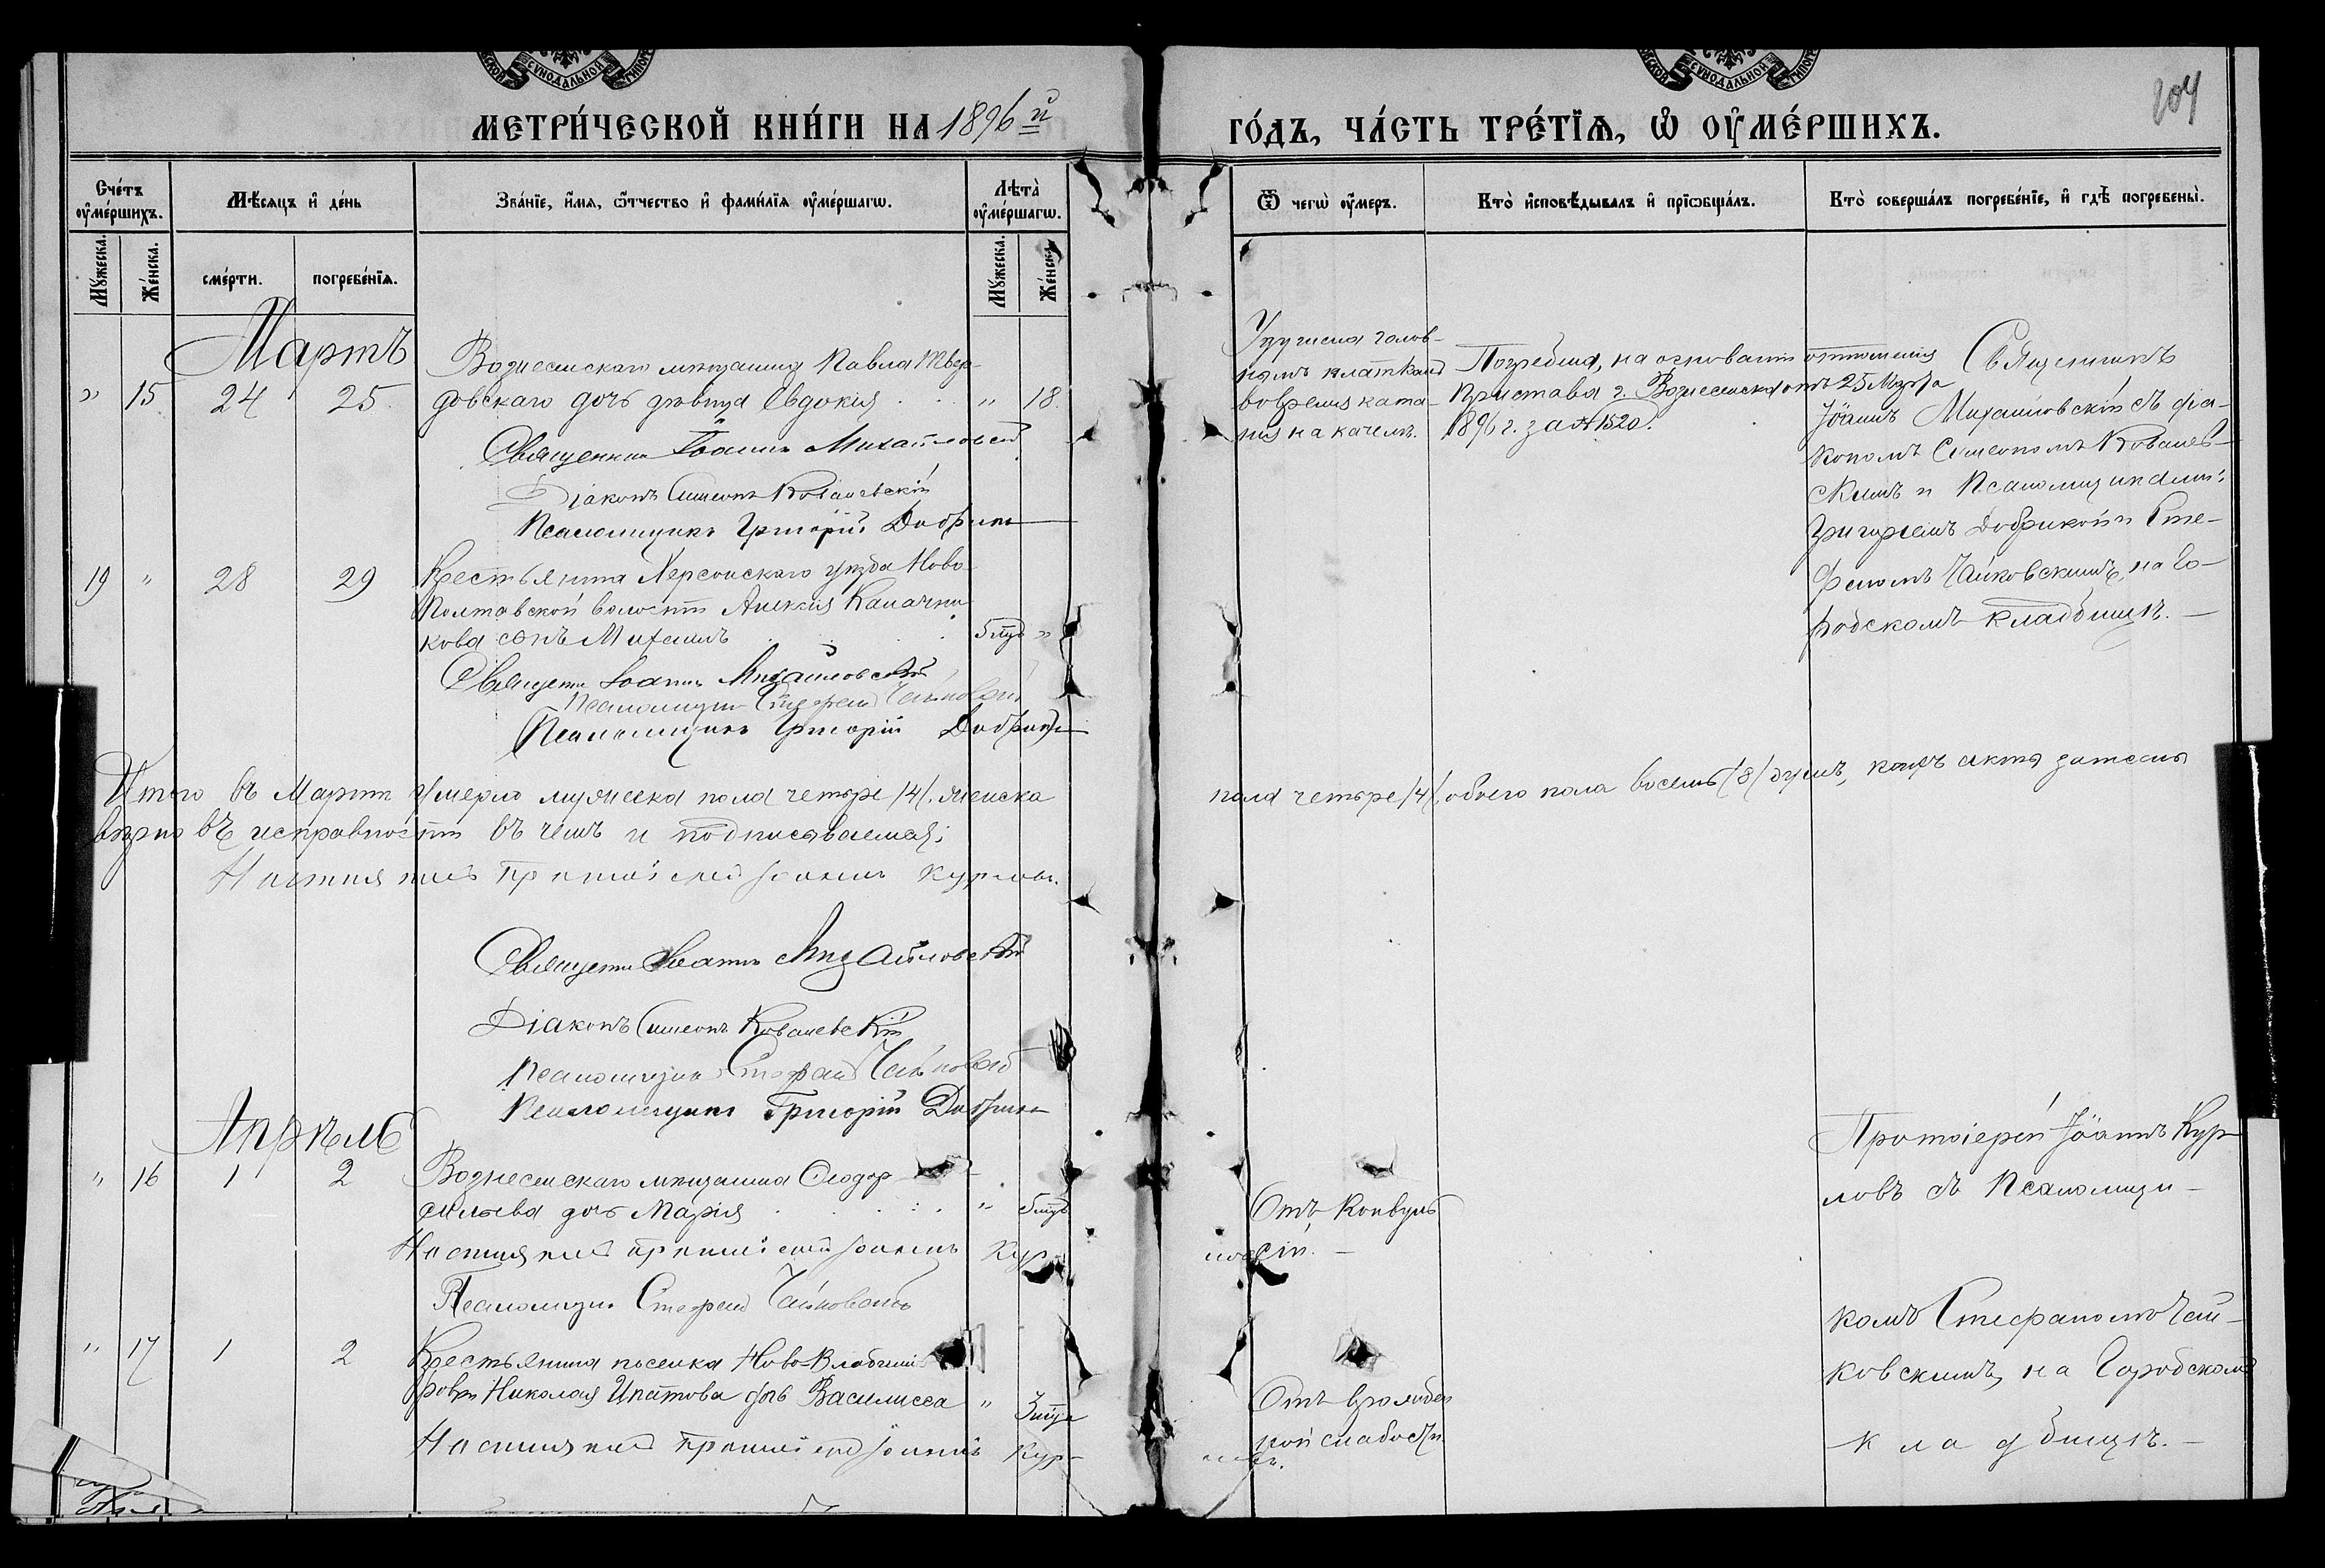 СѴНОДАЛЬНОЙ
СѴНОДАЛЬНОЙ
204
МЕТРИ́ЧЕСКОЙ КНИ́ГИ НА 1896й
ГО́ДЪ, ЧА́СТЬ ТРЕ́ТЇѦ, Ѽ ОУ҆МЕ́РШИХЪ.
Счётъ оу҆ме́ршихъ.
Мѣ́сяцъ и҆ де́нь
Зва́нїе, и҆́мя, ѻ҆́тчество и҆ фами́лїя оу҆ме́ршагѡ.
Лѣта̀ оу҆ме́ршагѡ.
Ѿ чегѡ̀ оу҆́меръ.
Кто̀ и҆сповѣ́дывалъ и҆ прїѡбща́лъ.
Кто̀ соверша́лъ погребе́нїе, и҆ гдѣ̀ погребены̀.
Мꙋ́жеска.
Же́нска.
сме́рти.
погребе́нїя.
Мꙋ́жеска.
Же́нска.
Мартъ
" 15 24 25
Вознесенскаго мѣщанина Павла Твер-
довскаго дочь дѣвица Евдокія " 18
Священникъ Іоаннъ Михайловскій
Діаконъ Симеонъ Ковалевскій
Псаломщикъ Григорій Добрик
нымъ платкомъ
во время ката-
нія на качел.
Погребена, на основаніи отношенія
Пристава г. Вознесенска отъ 25 Марта
1896 г. за № 1520.
Священникъ
Іоаннъ Михайловскій съ діа-
кономъ Симеономъ Ковалев-
скимъ и Псаломщиками:
Григоріемъ Добрикой и Сте-
фаномъ Чайковскимъ, на Го-
родскомъ кладбищѣ. —
19 " 28 29
Крестьянина Херсонскаго уѣзда Ново-
Полтавской волости Алексія
кова сынъ Михаилъ "
Священник Іоаннъ Михайловскій
Псаломщик Стефан Чайковскій
Псаломщикъ Григорій Добрик
Итого въ Мартѣ умерло мужеска пола четыре /4/. женска
пола четыре /4/, обоего пола восемь /8/ душъ, акта записи
вѣрно въ исправности въ чемъ и подписываемся:
Настоятель Протоіерей Іоаннъ Курлов.
Священник Іоаннъ Михайловскій
Діаконъ Симеонъ Ковалевскій
Псаломщик Стефан Чайковскій
Псаломщикъ Григорій Добрик
Апрѣль
" 16 1 2
Вознесенскаго мѣщанина Ѳеодор
сильева дочь Марія "
Настоятель Протоіерей Іоаннъ Кур
Псаломщик Стефан Чайковскій
Отъ конвуль
сій. —
Протоіерей Іоаннъ Кур-
ловъ съ Псаломщи-
комъ Стефаномъ Чай-
ковскимъ, на Городскомъ
кладбищѣ. —
" 17 1 2
Крестьянина поселка Ново-Владими
ровки Николая Ипатова дочь Василисса "
Настоятель Протоіерей Іоаннъ Кур-
Отъ врожден
ной слабости.